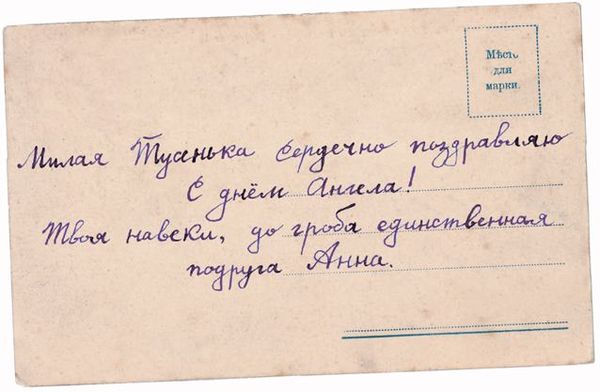 Мѣсто
для
марки.
Милая Тусенька Сердечно поздравляю
С днём Ангела!
Твоя навеки, до гроба единственная
подруга Анна.